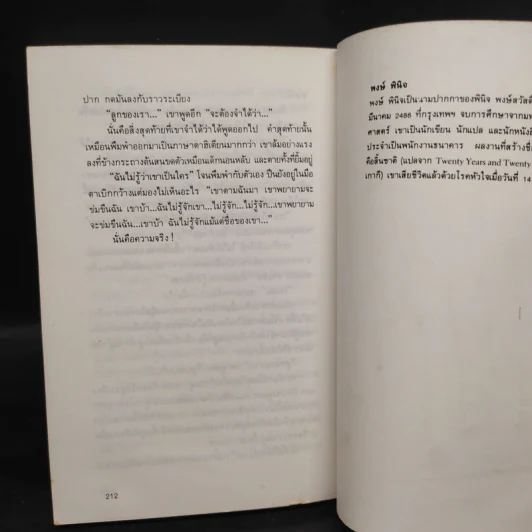 ปาก กดมันลงกับราวระเบียง
"ลูกของเรา..." เขาพูดอีก "จะต้องจำได้ว่า..."
นั่นคือสิ่งสุดท้ายที่เขาจำได้ว่าได้พูดออกไป คำสุดท้ายนั้น
เหมือนพึมพำออกมาเป็นภาษาตาฮิเตียนมากกว่า เขาล้มอย่างแรง
ลงที่ข้างกระถางต้นสนขดตัวเหมือนเด็กนอนหลับ และตายทั้งที่ยิ้มอยู่
"ฉันไม่รู้ว่าเขาเป็นใคร" โจนพึมพำกับตัวเอง ปืนยังอยู่ในมือ
ตาเบิกกว้างแต่มองไม่เห็นอะไร "เขาตามฉันมา เขาพยายามจะ
ข่มขืนฉัน เขาบ้า...ฉันไม่รู้จักเขา...ไม่รู้จัก...ไม่รู้จัก...เขาพยายาม
จะข่มขืนฉัน...เขาบ้า ฉันไม่รู้จักแม้แต่ชื่อของเขา..."
นั่นคือความจริง !
212
พงษ์ พินิจ
พงษ์ พินิจเป็นนามปากกาของพินิจ พงษ์สวัสดิ์
มีนาคม 2486 ที่กรุงเทพฯ จบการศึกษาจาก
ศาสตร์ เขาเป็นนักเขียน นักแปล และนักหนัง
ประจำเป็นพนักงานธนาคาร ผลงานที่สร้างชื่
คือสิ้นชาติ (แปลจาก Twenty Years and Twenty
เกากี) เขาเสียชีวิตแล้วด้วยโรคหัวใจเมื่อวันที่ 14